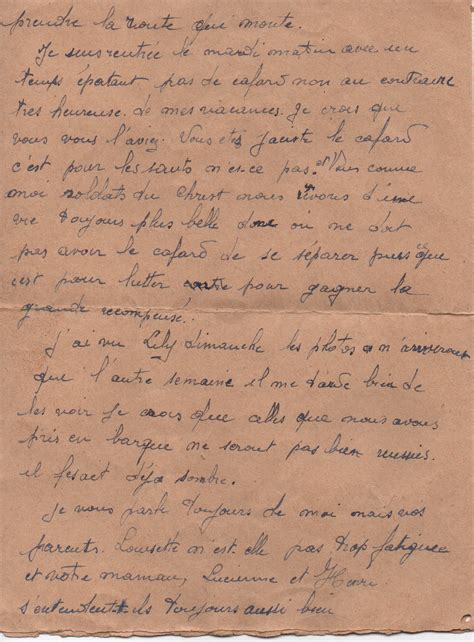 prendre la route qui monte.
Je suis rentrée le mardi matin avec un
temps épatant pas de cafard non au contraire
très heureuse. de mes vacances. Je crois que
vous vous l'aviez. Vous etes le cafard
c'est pour les sauts n'est ce pas. et Vous comme
moi soldats du Christ nous vivons d'une
vie toujours plus belle donc on ne doit
pas avoir le cafard de se séparer puisque
c'est pour lutter pour gagner la
grande recompense.
J'ai vu Lily dimanche les photos n'arriveront
que l'autre semaine il me tarde bien de
les voir je crois que celles que nous avons
pris en barque ne seront pas bien reussies.
il fesait déja sombre.
Je vous parle toujours de moi mais vos
parents. Lousette n'est elle pas trop fatiguée
et votre maman, Lucienne et Henri
s'entendent ils toujours aussi bien